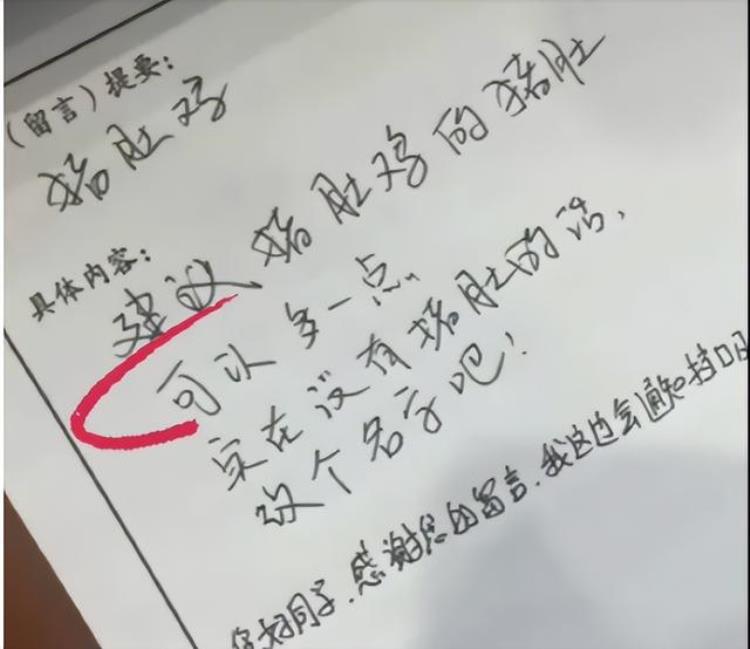 （留言）提要：
猪肚鸡
具体内容：
建议猪肚鸡的猪肚
可以多一点
实在没有猪肚的话，
改个名字吧！
您好同学，感谢您的留言，我这边会通知档口